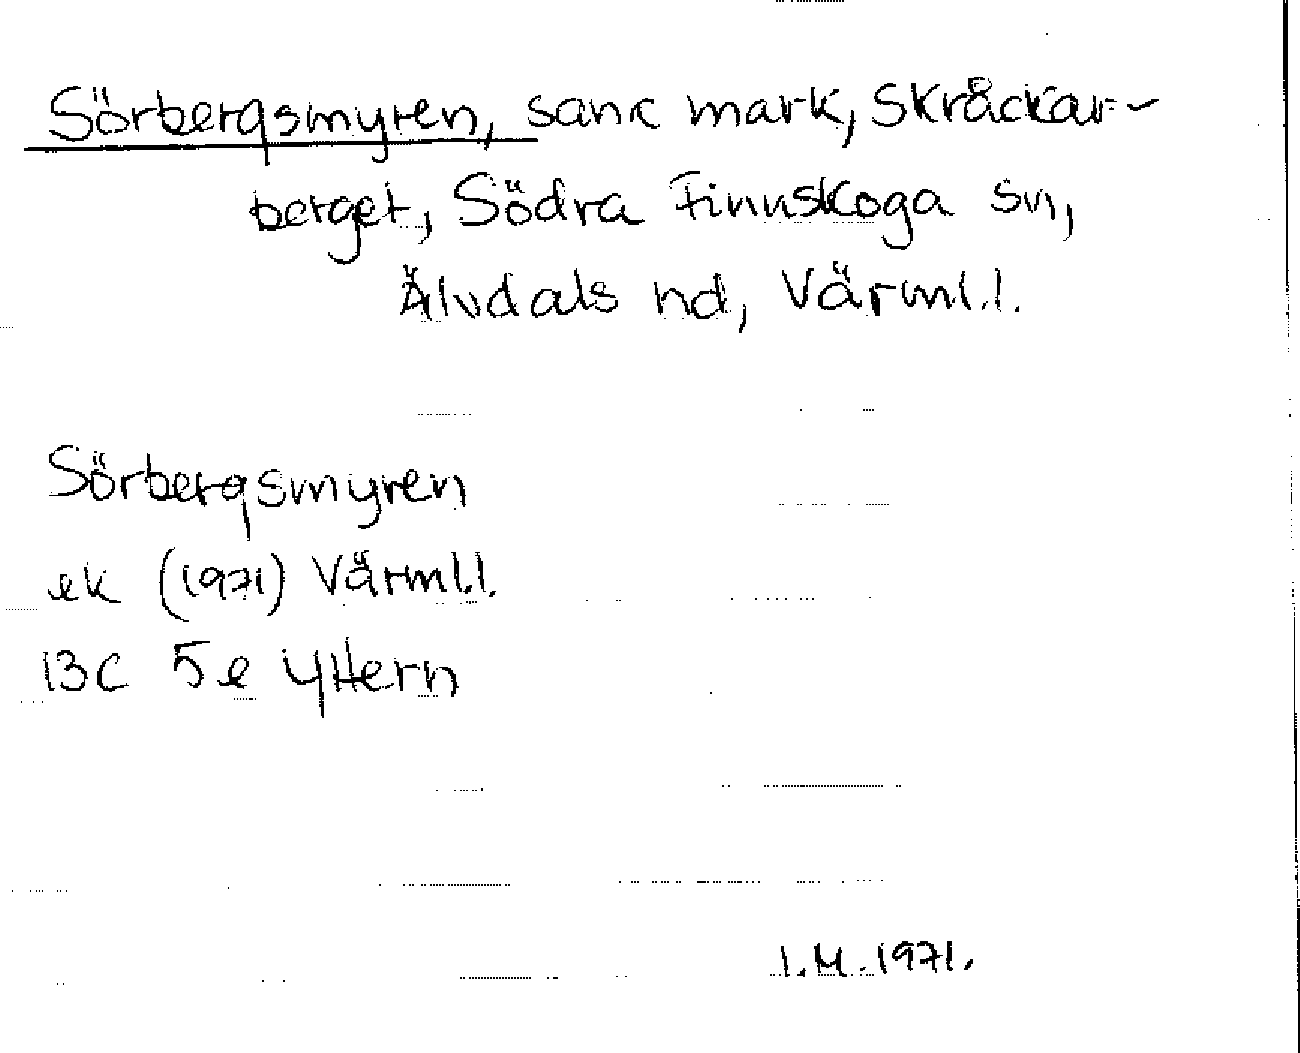 Sörbergsmyren, sank mark, Skråckar-
berget, Södra Finnskoga sn,
Älvdals hd, Värml.l.
Sörbergsmyren
ek (1971) Värml.l.
13C 5e Yttern
I.M.1971.